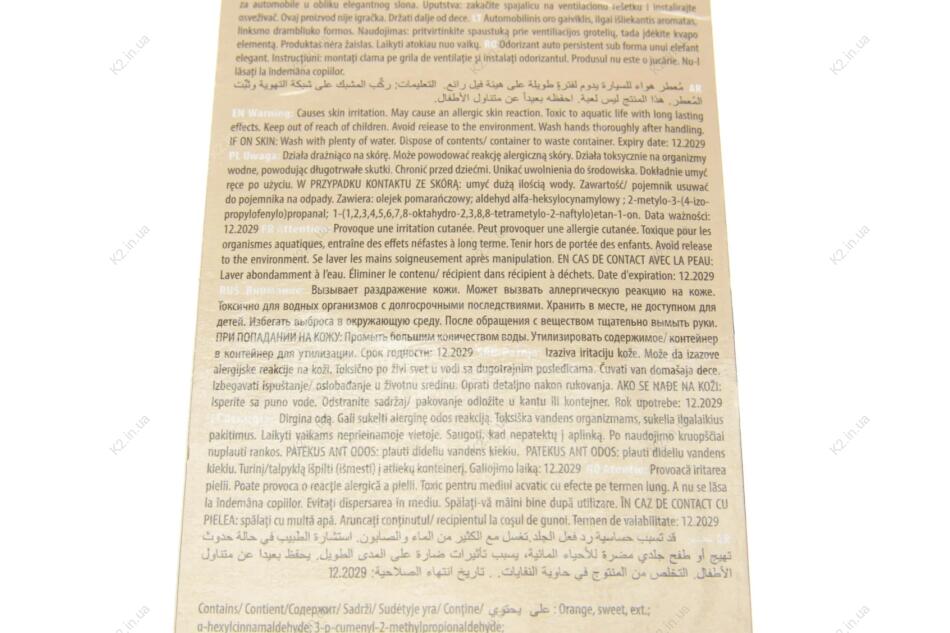 za automobile u obliku elegantnog slona. Uputstva: zakačite spajalicu na ventilacionu rešetku i instalirajte
osveživač. Ovaj proizvod nije igračka. Držati dalje od dece. LT Automobilinis oro gaiviklis, ilgai išliekantis aromatas,
linksmo drambliuko formos. Naudojimas: pritvirtinkite spaustuką prie ventiliacijos grotelių, tada įdėkite kvapo
elementą. Produktas nėra žaislas. Laikyti atokiau nuo vaikų. RO Odorizant auto persistent sub forma unui elefant
elegant. Instrucțiuni: montați clama pe grila de ventilație și instalați odorizantul. Produsul nu este o jucărie. Nu-l
lăsați la îndemâna copiilor.
AR مُعطر هواء للسيارة يدوم لفترة طويلة على هيئة فيل رائع. التعليمات: ركّب المشبك على شبكة التهوية وثبّت
المُعطر. هذا المنتج ليس لعبة. احفظه بعيداً عن متناول الأطفال.
EN Warning: Causes skin irritation. May cause an allergic skin reaction. Toxic to aquatic life with long lasting
effects. Keep out of reach of children. Avoid release to the environment. Wash hands thoroughly after handling.
IF ON SKIN: Wash with plenty of water. Dispose of contents/ container to waste container. Expiry date: 12.2029
PL Uwaga: Działa drażniąco na skórę. Może powodować reakcję alergiczną skóry. Działa toksycznie na organizmy
wodne, powodując długotrwałe skutki. Chronić przed dziećmi. Unikać uwolnienia do środowiska. Dokładnie umyć
ręce po użyciu. W PRZYPADKU KONTAKTU ZE SKÓRĄ: umyć dużą ilością wody. Zawartość/ pojemnik usuwać
do pojemnika na odpady. Zawiera: olejek pomarańczowy; aldehyd alfa-heksylocynamylowy ; 2-metylo-3-(4-izo-
propylofenylo)propanal; 1-(1,2,3,4,5,6,7,8-oktahydro-2,3,8,8-tetrametylo-2-naftylo)etan-1-on. Data ważności:
12.2029 FR Attention: Provoque une irritation cutanée. Peut provoquer une allergie cutanée. Toxique pour les
organismes aquatiques, entraîne des effets néfastes à long terme. Tenir hors de portée des enfants. Avoid release
to the environment. Se laver les mains soigneusement après manipulation. EN CAS DE CONTACT AVEC LA PEAU:
Laver abondamment à l'eau. Éliminer le contenu/ récipient dans récipient à déchets. Date d'expiration: 12.2029
RUS Внимание: Вызывает раздражение кожи. Может вызвать аллергическую реакцию на коже.
Токсично для водных организмов с долгосрочными последствиями. Хранить в месте, не доступном для
детей. Избегать выброса в окружающую среду. После обращения с веществом тщательно вымыть руки.
ПРИ ПОПАДАНИИ НА КОЖУ: Промыть большим количеством воды. Утилизировать содержимое/ контейнер
в контейнер для утилизации. Срок годности: 12.2029 Izaziva iritaciju kože. Može da izazove
alergijske reakcije na koži. Toksično po živi svet u vodi sa dugotrajnim posledicama. Čuvati van domašaja dece.
Izbegavati ispuštanje/ oslobađanje u životnu sredinu. Oprati detaljno nakon rukovanja. AKO SE NAĐE NA KOŽI:
Isperite sa puno vode. Odstranite sadržaj/ pakovanje odložite u kantu ili kontejner. Rok upotrebe: 12.2029
Dirgina odą. Gali sukelti alerginę odos reakciją. Toksiška vandens organizmams, sukelia ilgalaikius
pakitimus. Laikyti vaikams neprieinamoje vietoje. Saugoti, kad nepatektų į aplinką. Po naudojimo kruopščiai
nuplauti rankos. PATEKUS ANT ODOS: plauti dideliu vandens kiekiu. PATEKUS ANT ODOS: plauti dideliu vandens
kiekiu. Turinį/talpyklą išpilti (išmesti) į atliekų konteinerį. Galiojimo laiką: 12.2029 RO Atenție: Provoacă iritarea
pielii. Poate provoca o reacție alergică a pielii. Toxic pentru mediul acvatic cu efecte pe termen lung. A nu se lăsa
la îndemâna copiilor. Evitați dispersarea în mediu. Spălați-vă mâini bine după utilizare. ÎN CAZ DE CONTACT CU
PIELEA: spălați cu multă apă. Aruncați conținutul/ recipientul la coșul de gunoi. Termen de valabilitate: 12.2029
AR قد تسبب حساسية رد فعل الجلد.تغسل مع الكثير من الماء والصابون. استشارة الطبيب في حالة حدوث
تهيج أو طفح جلدي مضرة للأحياء المائية، يسبب تأثيرات ضارة على المدى الطويل. يحفظ بعيدا عن متناول
الأطفال. التخلص من المنتوج في حاوية النفايات. . تاريخ انتهاء الصلاحية: 12.2029
Contains/ Contient/Содержит/ Sadrži/ Sudėtyje yra/ Conține/ على يحتوي : Orange, sweet, ext.;
α-hexylcinnamaldehyde; 3-p-cumenyl-2-methylpropionaldehyde;
K2.in.ua
K2.in.ua
K2.in.ua
K2.in.ua
K2.in.ua
K2.in.ua
K2.in.ua
K2.in.ua